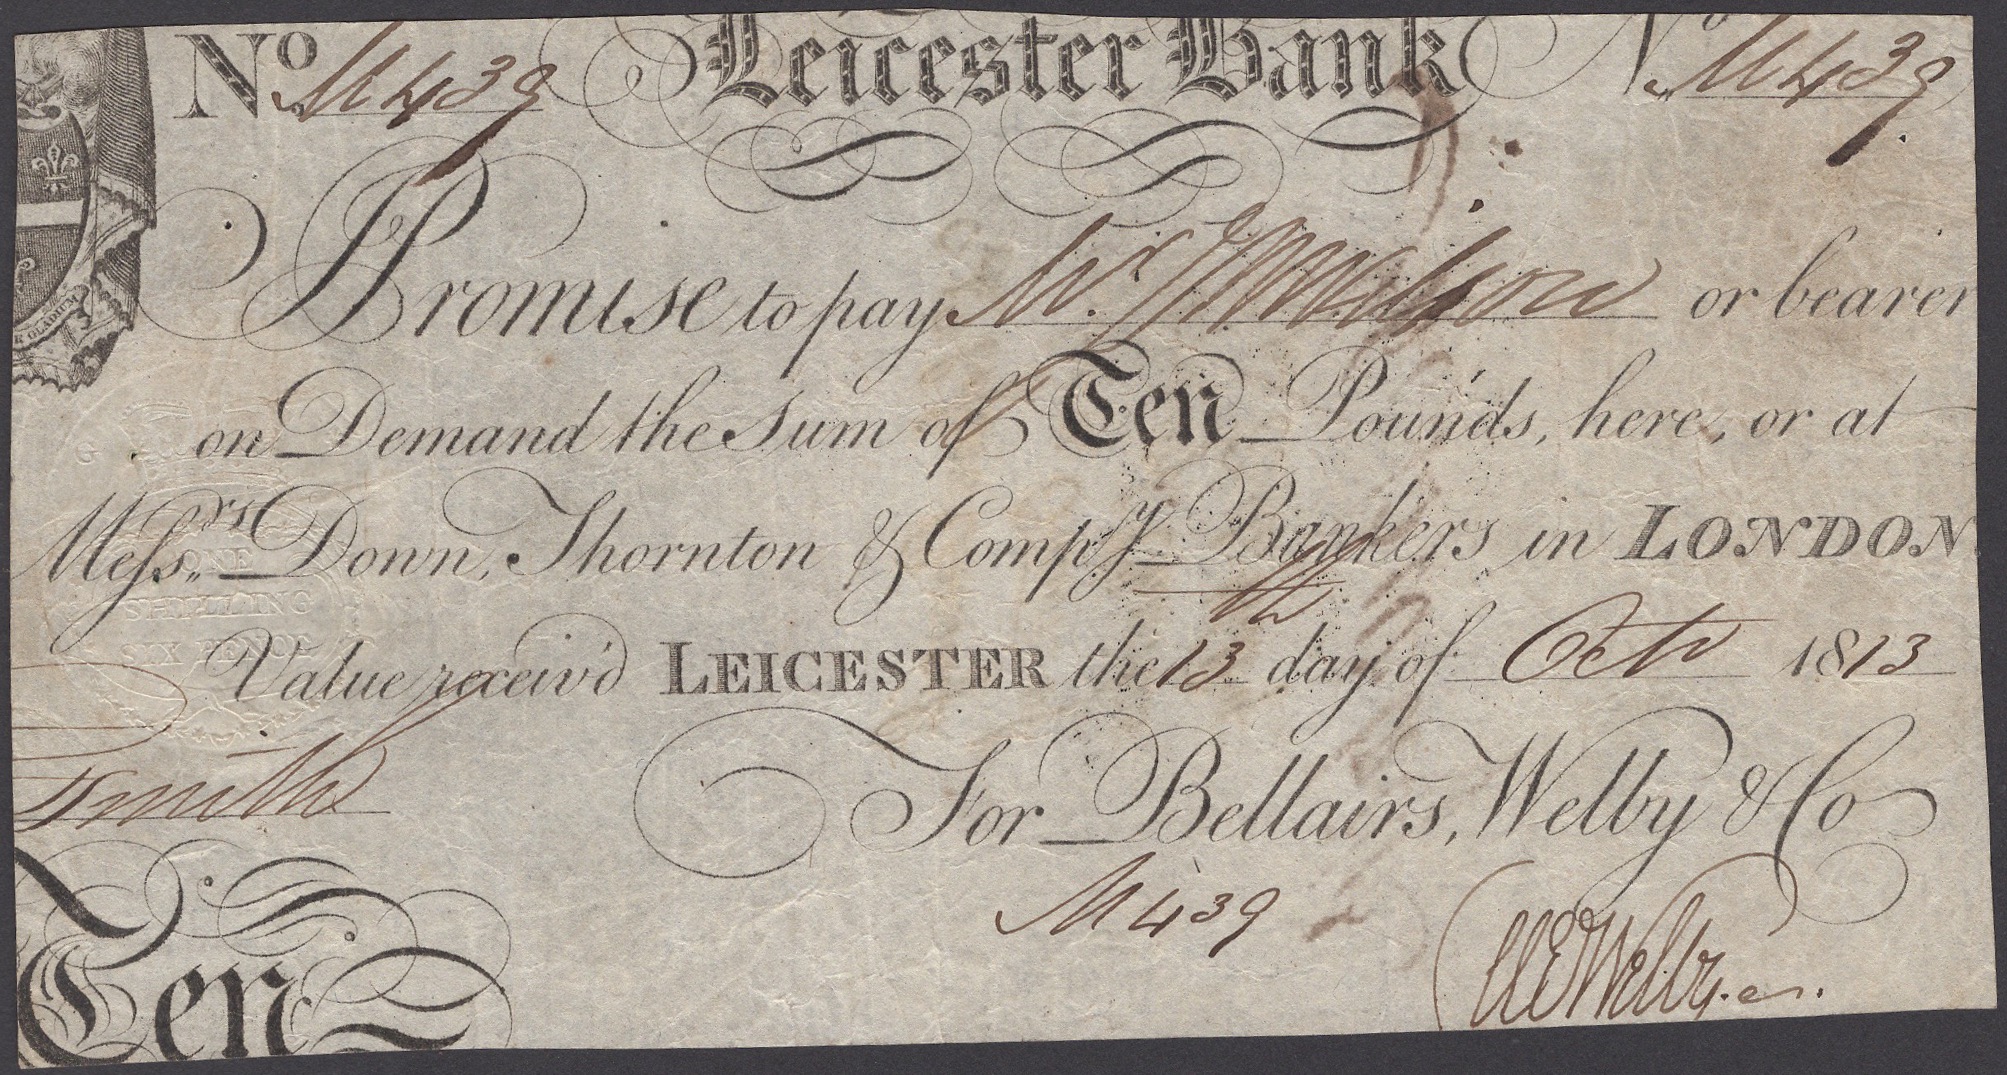 No. M439 Leicester Bank No. M439
R GLADIUM
I Promise to pay Mr. J. Watson or bearer
on Demand the Sum of Ten Pounds, here, or at
Messrs. Down, Thornton & Compy. Bankers in LONDON
G
ONE
SHILLING
SIX PENCE
Value receiv'd LEICESTER the 13th day of Octr 1813
Smith
For Bellairs, Welby & Co
M439
Welby
Ten